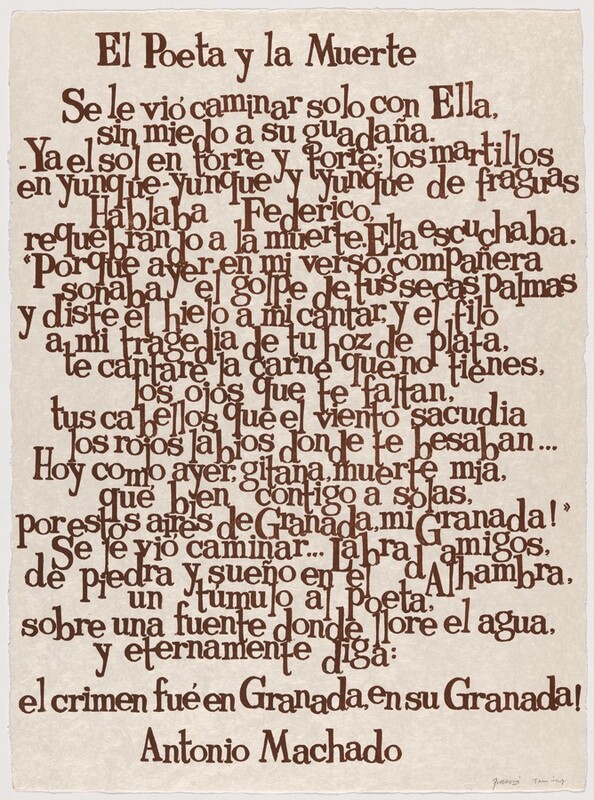 El Poeta y la Muerte
Se le vió caminar solo con Ella,
sin miedo a su guadaña.
-Ya el sol en torre y torre; los martillos
en yunque-yunque y yunque de fraguas
Hablaba Federico,
requebrando a la muerte. Ella escuchaba.
“Porque ayer en mi verso, compañera
sonaba y el golpe de tus secas palmas
y diste el hielo a mi cantar, y el filo
a mi tragedia de tu hoz de plata,
te cantaré la carne que no tienes,
los ojos que te faltan,
tus cabellos que el viento sacudia
los rojos labios donde te besaban...
Hoy como ayer, gitana, muerte mia,
que bien contigo a solas,
por estos aires de Granada, mi Granada!”
Se le vió caminar... Labrad amigos,
de piedra y sueño en el Alhambra,
un túmulo al poeta,
sobre una fuente donde llore el agua,
y eternamente diga:
el crimen fué en Granada, en su Granada!
Antonio Machado